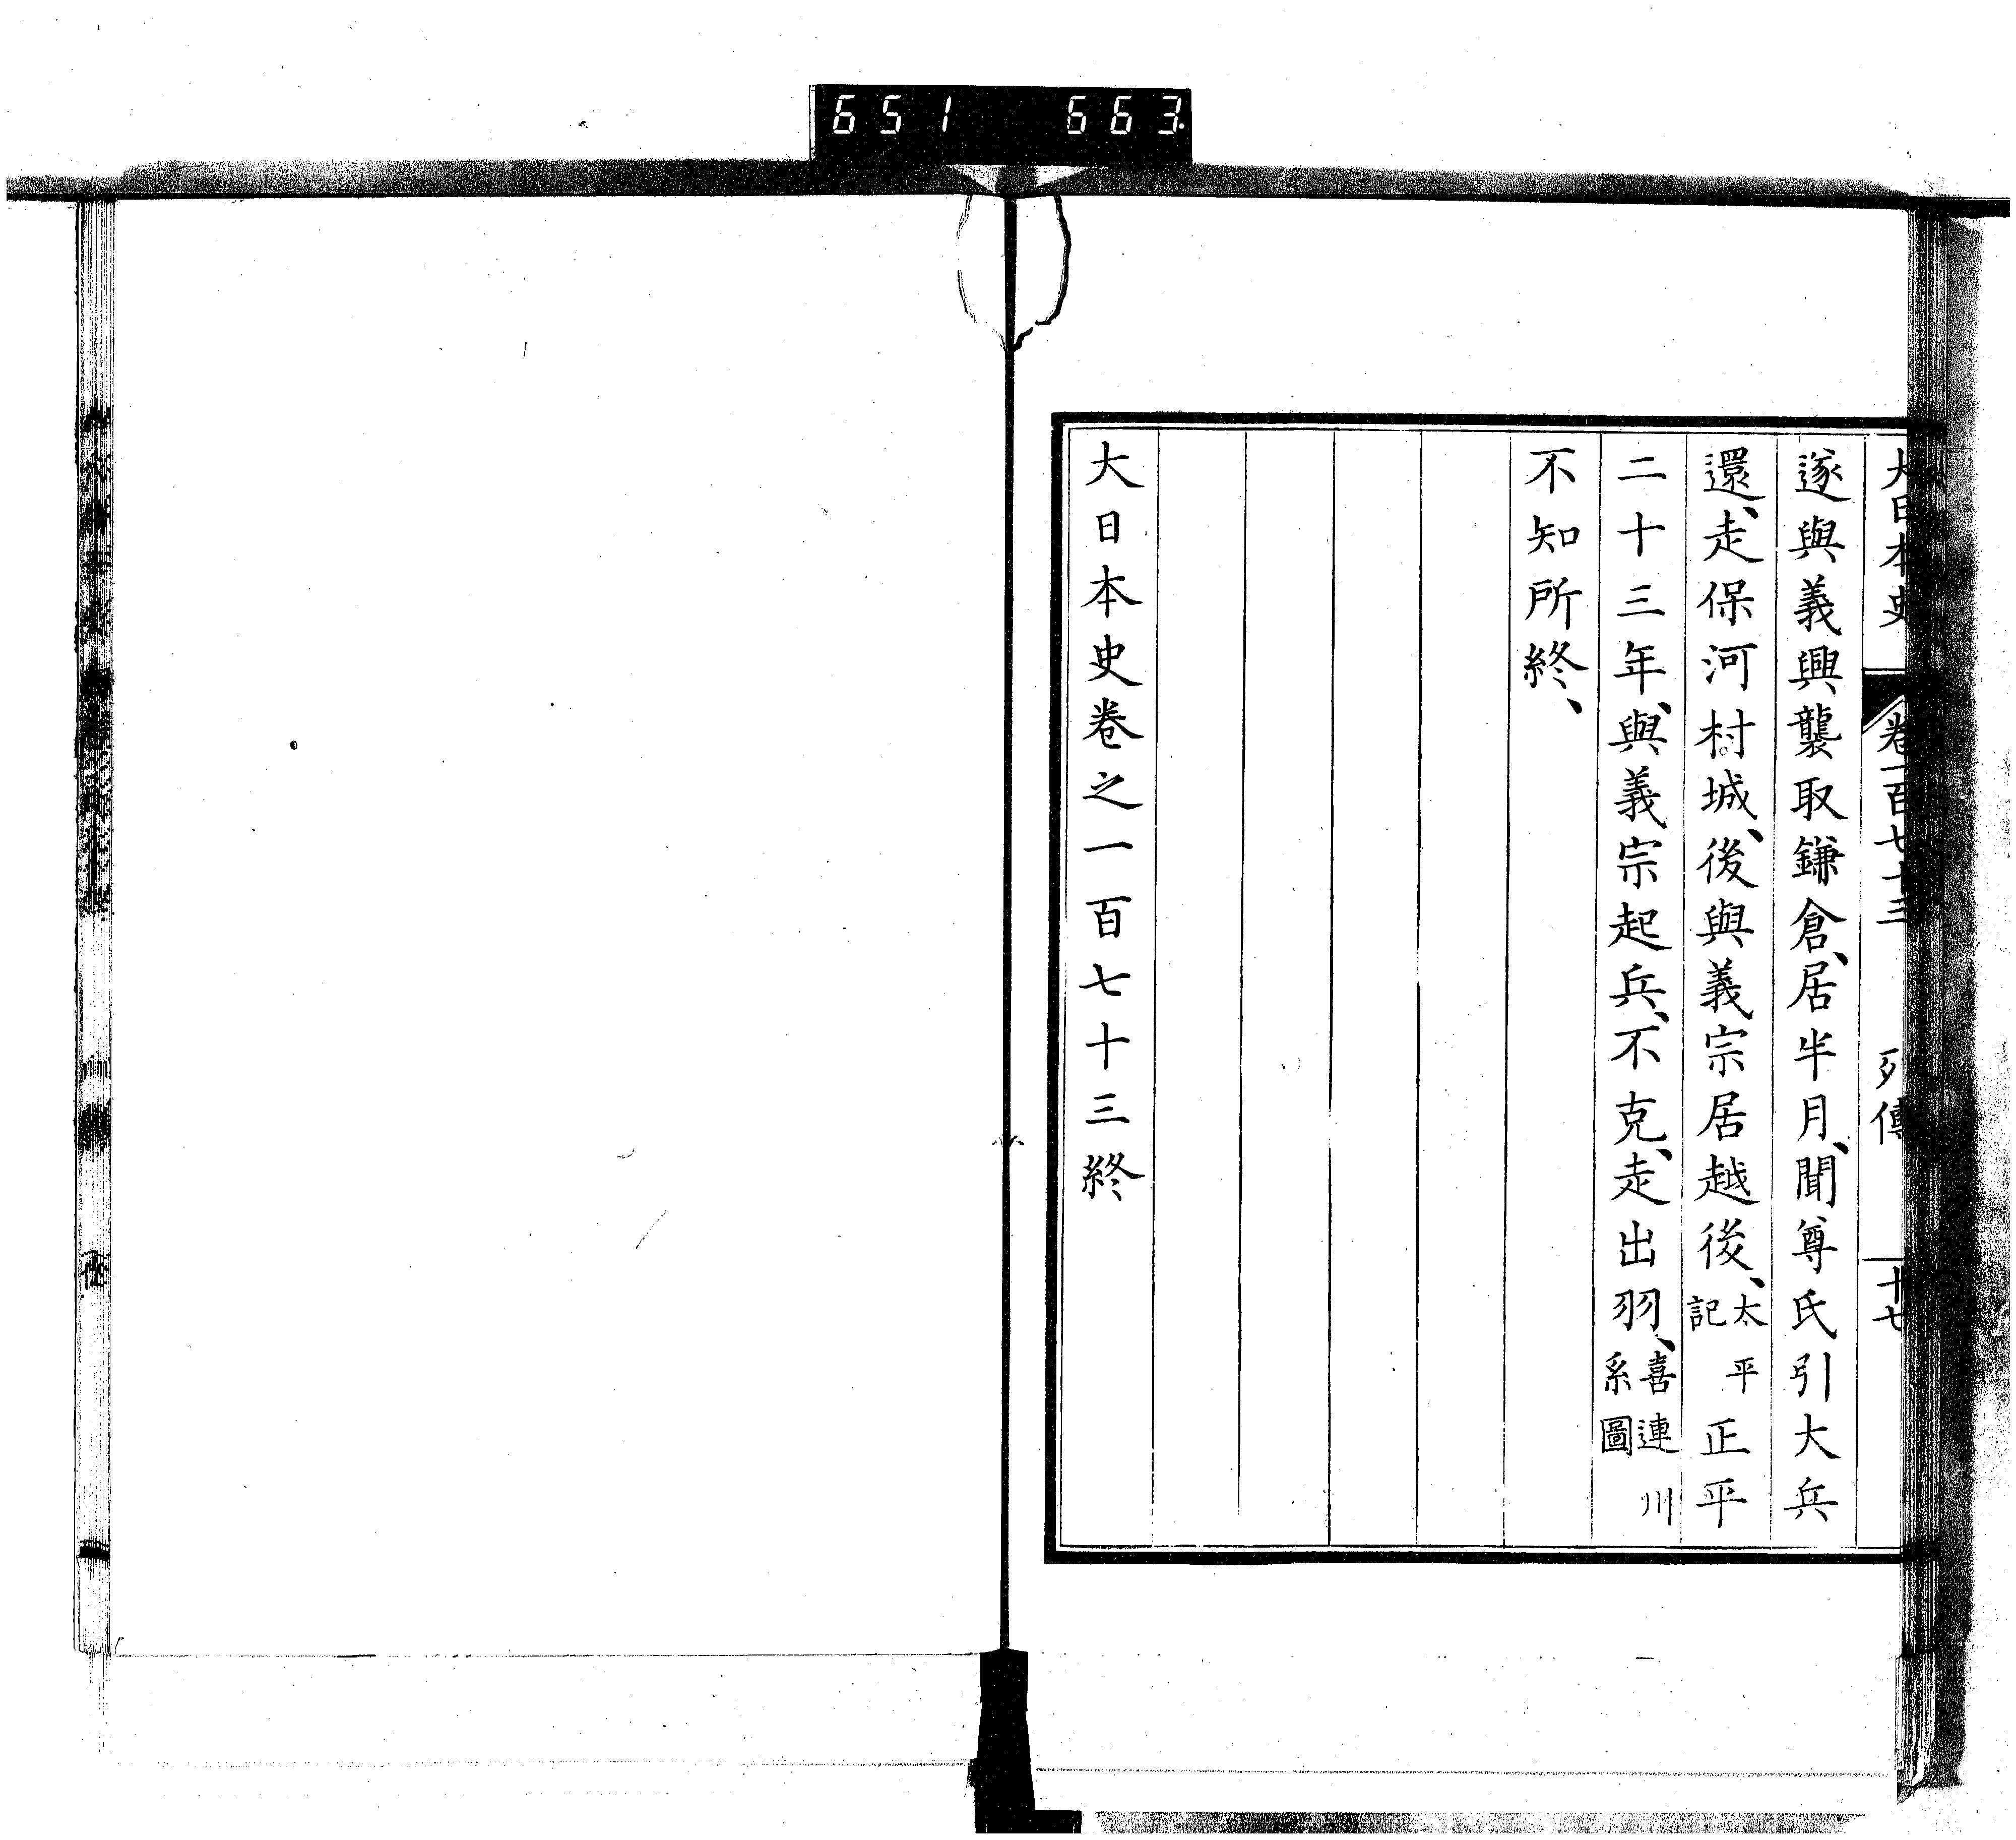 651 663
大日本史 卷一百七十三 列傳 十七
遂與義興襲取鎌倉、居半月、聞尊氏引大兵
還、走保河村城、後與義宗居越後、太平記正平
二十三年、與義宗起兵、不克、走出羽、喜連川系圖
不知所終、
大日本史卷之一百七十三終